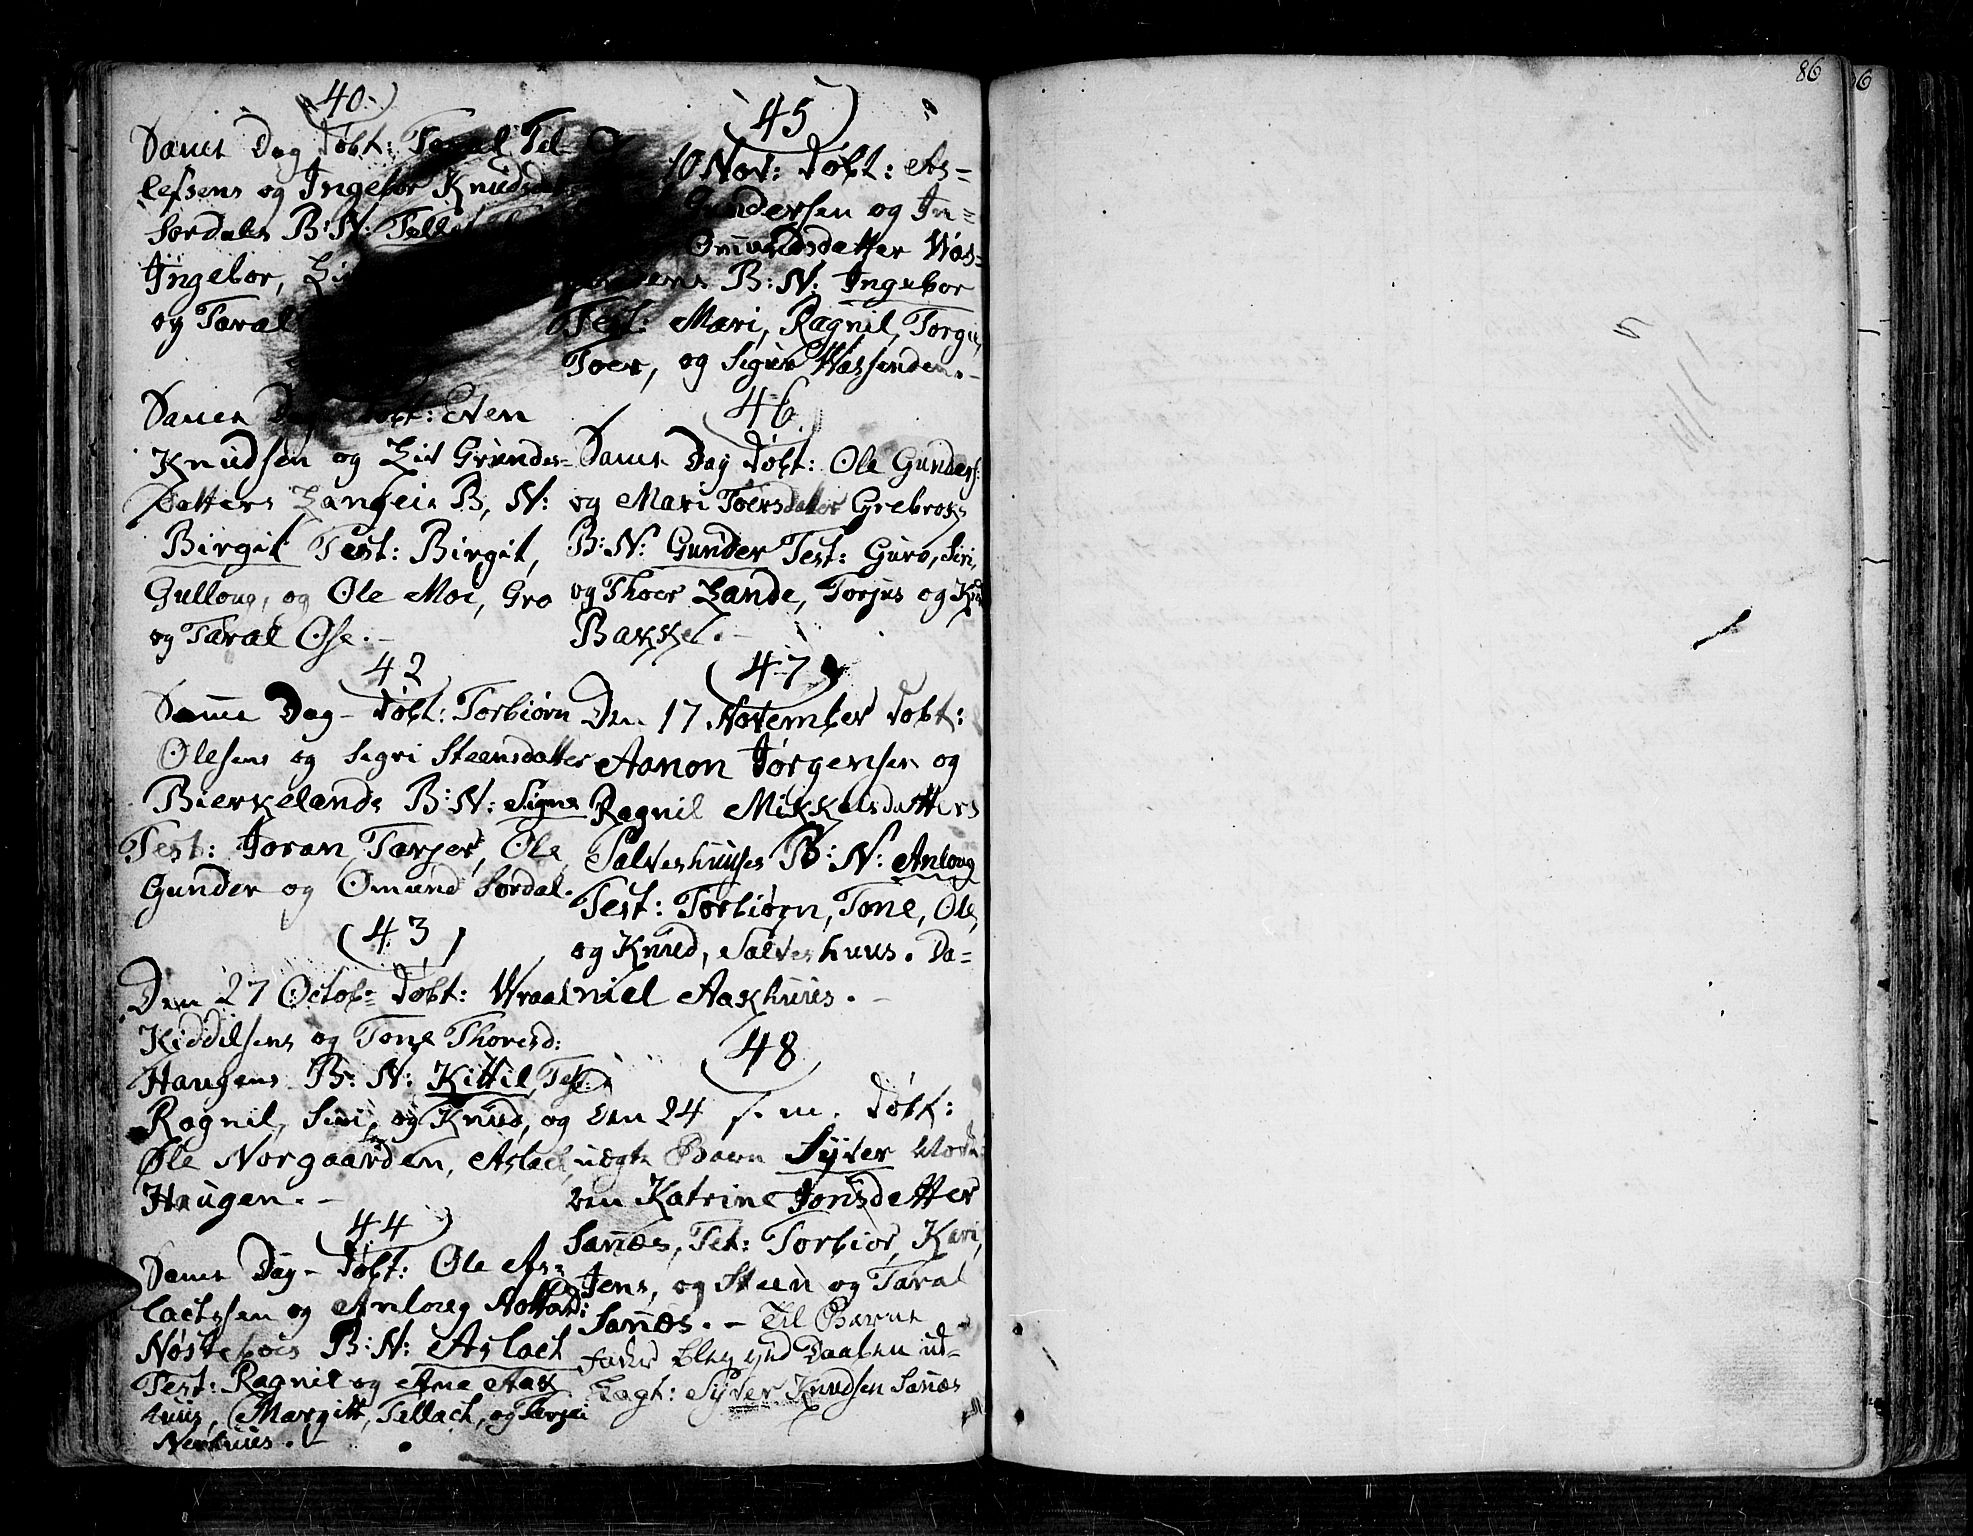 40
Samme Dag døbt: Taral Tel-
lefsens og Ingebor Knudsdat
Sordals B: N:
Ingebor,
og Taral
Samme Dag døbt: Even
Knudsen og Liv Gunders-
Datters Langeia B, N:
Birgit Test: Birgit,
Gullaug, og Ole Moe, Gro
og Taral Ose. -
42
Samme Dag - døbt: Torbiørn
Olesens og Segri Steensdatter
Bierkelands B: N: Signe
Test: Joran, Tarjer, Ole
Gunder og Omund Sordal.
(43)
Den 27 Octob= døbt: Wraal
Kiddilsens og Tone Thoresd:
Haugens B: N: Kittil, Test:
Ragnil, Siri, og Knud, og
Ole Norgaarden, Aslach
Haugen. -
44
Samme Dag - døbt: Ole As=
lachssen og Anloug
Nøsteboes B: N: Aslach
Test: Ragnil og Ane Aak
huus, Margitt, Tellach, og Tarjei
Nerhuus. -
(45)
10 Nov: døbt: As=
Gundersen og In=
Omundsdatter Vas=
B: N: Ingebor
Test: Mari, Ragnil, Torgus,
Toer, og Sigur Wassenden. -
46
Samme Dag døbt: Ole Gunders:
og Mari Toersdatter Grebroks
B: N: Gunder Test: Guro, Siri,
og Thoer Lande, Torjus og Knud
Bakke. -
(47)
Den 17. November døbt:
Aanon Jørgensen og
Ragnil Mikkelsdatters
Salveshuuses B: N: Anloug
Test: Torbiørn, Tone, Ole,
og Knud, Salveshuus. Da=
niel Aakhuus. -
48
Den 24 s. m. døbt:
uægte Barn Syver Mode-
ren Katrine Jonsdatter
Sannes, Tet: Torbior, Kari,
Jens, og Steen og Taral
Sannes. - Til Barnets
fader blev ved Daaben ud-
Lagt: Syver Knudsen Sannes
86